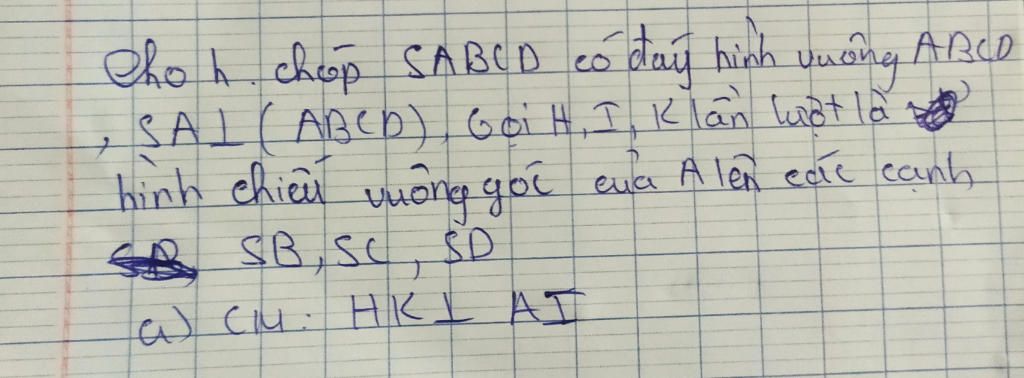 Cho h. chóp SABCD có đáy hình vuông ABCD
, SA⊥(ABCD), Gọi H, I, K lần lượt là
hình chiếu vuông góc của A lên các cạnh
SB, SC, SD
a) CM: HK⊥ AI